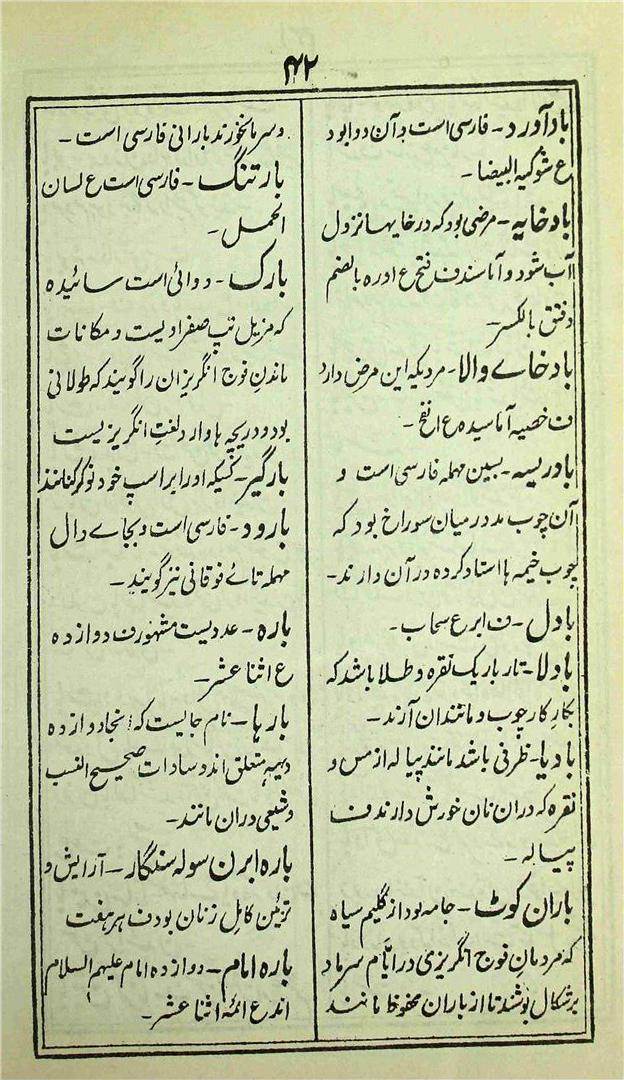 ۴۲
بادآورد۔ فارسی است و آن دوا بود
ع شوکۃ البیضا۔
بادخایہ۔ مرضی بود کہ در خایہا نزول
آب شود و آماسند ف فتح ع ادرہ بالضم
و فتق بالکسر۔
بادخاے والا۔ مردیکہ این مرض دارد
ف خصیہ آماسیدہ ع انفخ۔
بادریسہ۔ بسین مہملہ فارسی است و
آن چوب مدور میان سوراخ بود کہ
چوب خیمہ ہا استادکردہ در آن دارند۔
بادل۔ ف ابر ع سحاب۔
بادلا۔ تار باریک نقرہ و طلا باشد کہ
بکار کارچوب و مانند آن آرند۔
بادیا۔ ظرفی باشد مانند پیالہ از مس و
نقرہ کہ در ان نان خورش دارند ف
پیالہ۔
باران کوٹ۔ جامہ بود از گلیم سیاہ
کہ مردمان فوج انگریزی در ایّام سرما و
برشکال پوشند تا از باران محفوظ مانند
و سرما نخورند بارانی فارسی است۔
بارتنگ۔ فارسی است ع لسان
الحمل۔
بارک۔ دوائی است سائیدہ
کہ مزیل تپ صفراویست و مکانات
ماندن فوج انگریزان را گویند کہ طولانی
بود و دریچہ ہا وارد لغت انگریزیست
بارگیر۔ کسیکہ اورا بر اسپ خود نوکر کنانند
بارود۔ فارسی است و بجاے دال
مہملہ تاے فوقانی نیز گویند۔
بارہ۔ عددیست مشہور ف دوازدہ
ع اثنا عشر۔
بارہا۔ نام جایست کہ انجا دوازدہ
دیہہ متعلق اند و سادات صحیح النسب
و شیعی دران مانند۔
بارہ ابرن سولہ سنگار۔ آرایش و
تزئین کامل زنان بود ف ہر ہفت
بارہ امام۔ دوازدہ امام علیہم السلام
اند ع ائمہ اثنا عشر۔